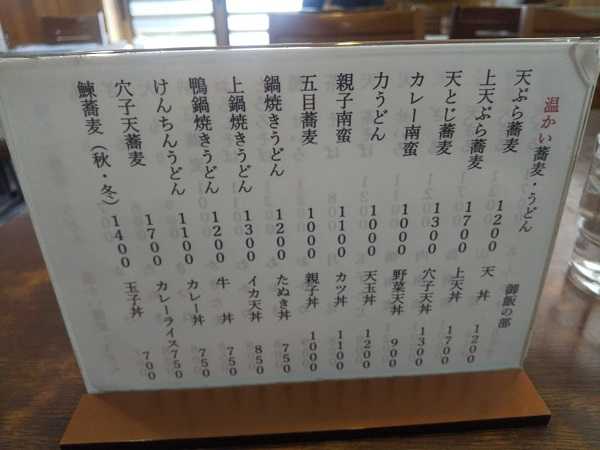 温かい蕎麦・うどん
天ぷら蕎麦 1200
上天ぷら蕎麦 1700
天とじ蕎麦 1300
カレー南蛮 1000
力うどん 1000
親子南蛮 1100
五目蕎麦 1000
鍋焼きうどん 1200
上鍋焼きうどん 1300
鴨鍋焼きうどん 1200
けんちんうどん 1100
穴子天蕎麦 1700
鰊蕎麦(秋・冬) 1400
御飯の部
天丼 1200
上天丼 1700
穴子天丼 1300
野菜天丼 900
天玉丼 1200
カツ丼 1100
親子丼 1000
たぬき丼 750
イカ天丼 850
牛丼 750
カレー丼 750
カレーライス 750
玉子丼 700